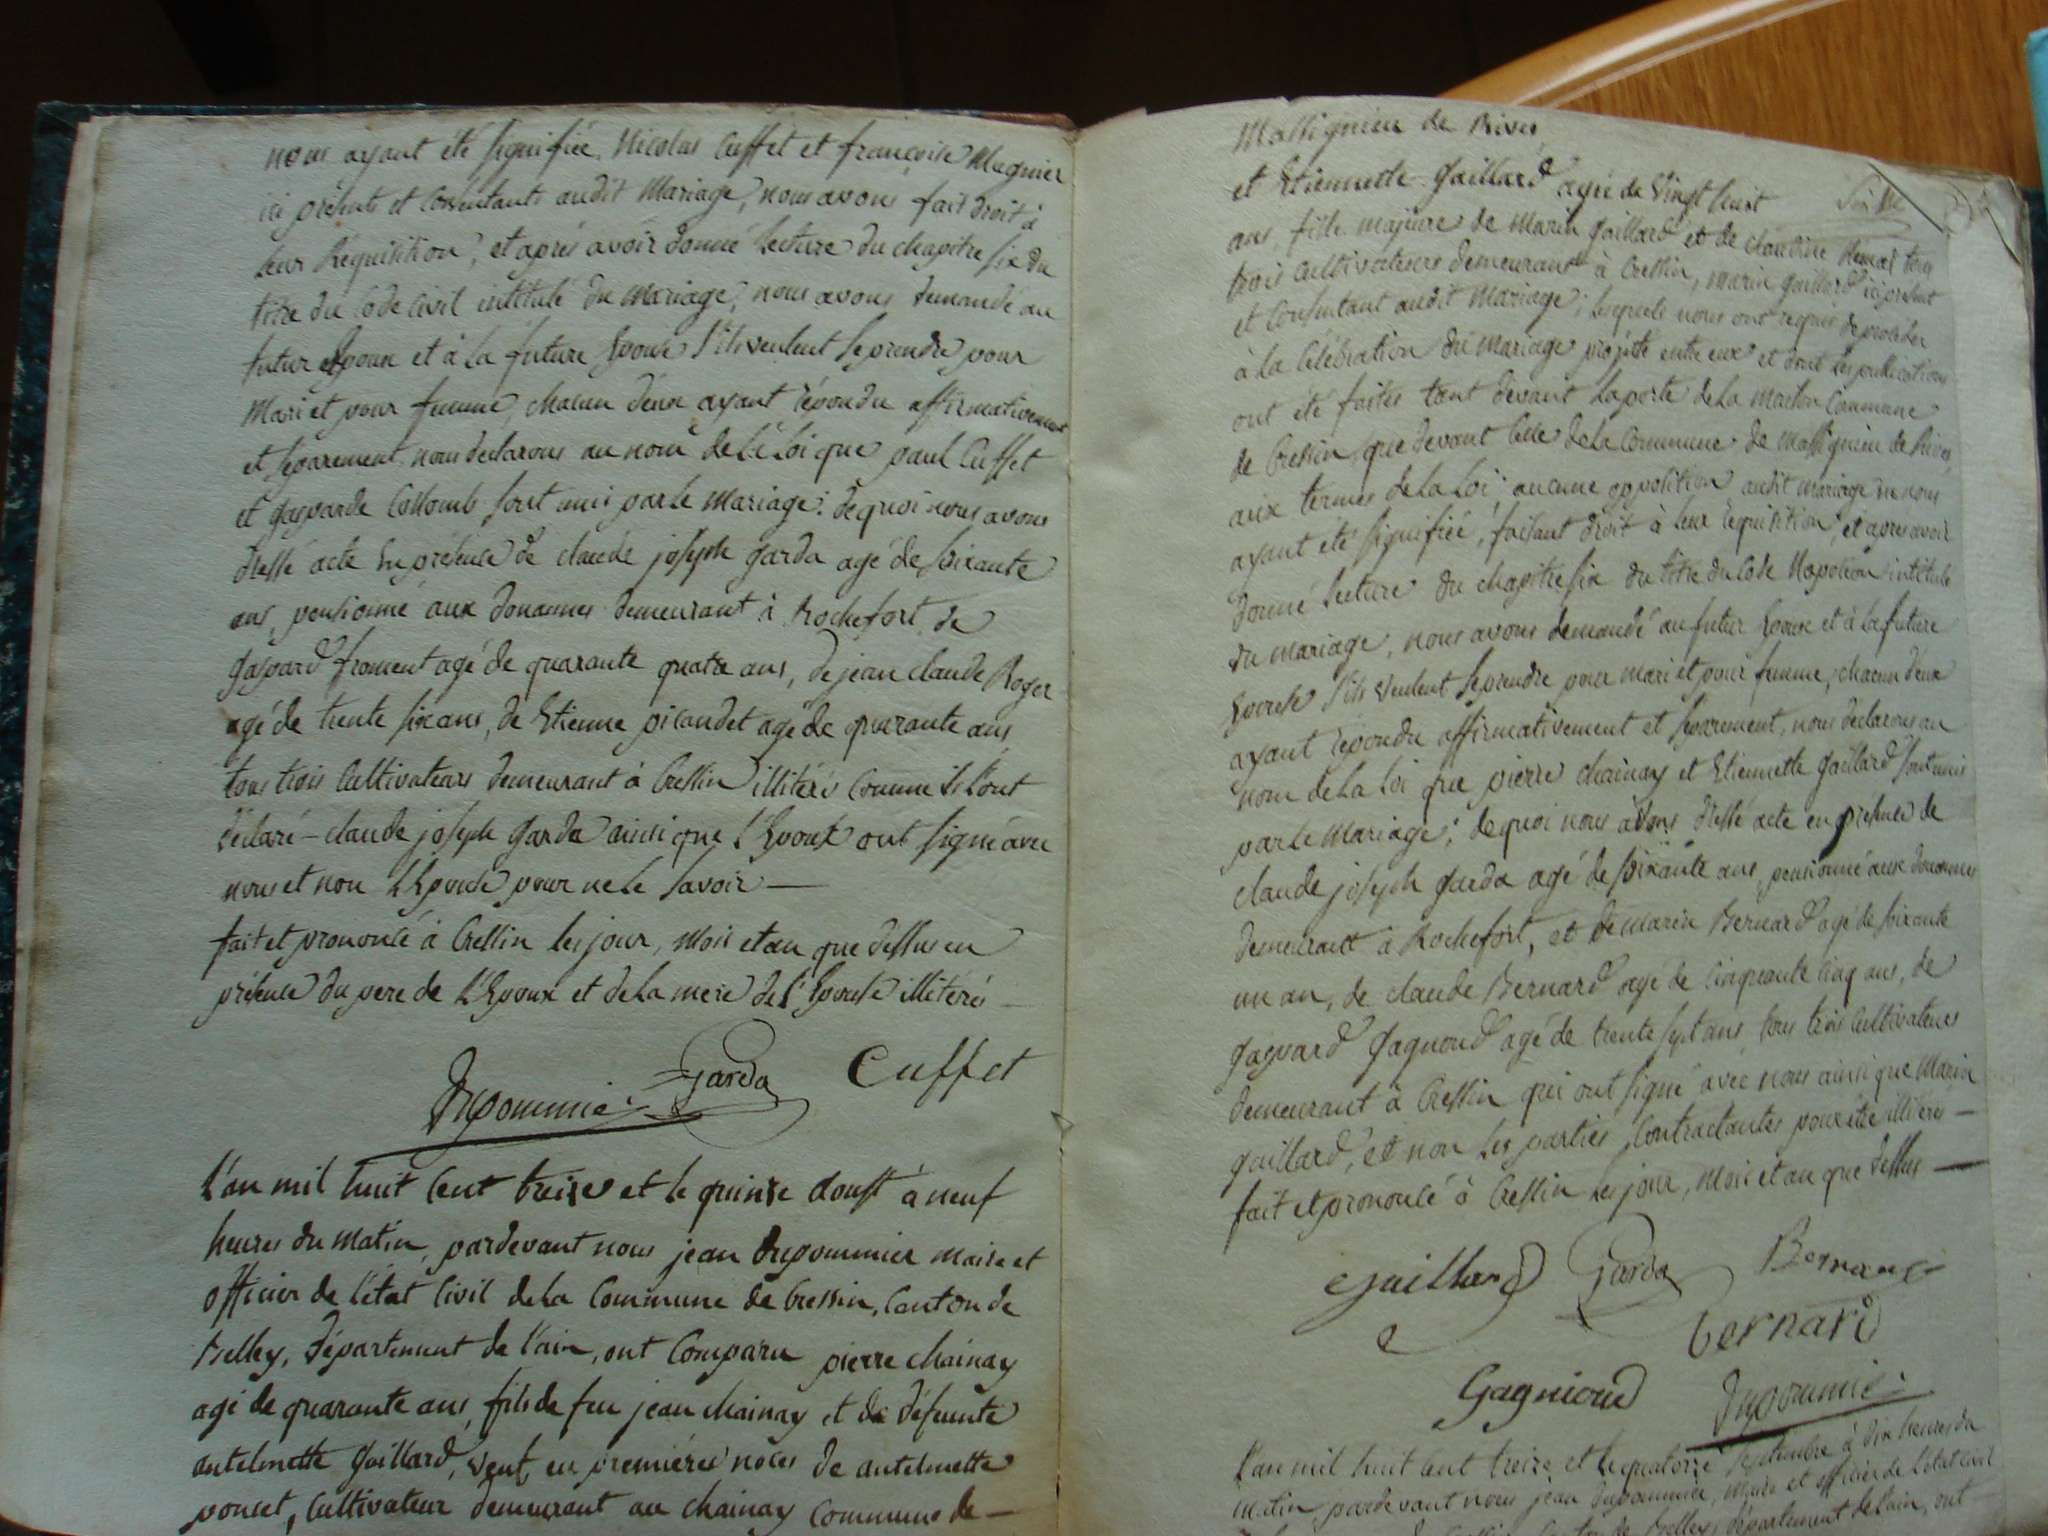 nous ayant été signifiée, Nicolas Cuffet et françoise Magnier
ici présents et Consentants audit Mariage, nous avons fait droit à
leur Réquisition, et après avoir donné lecture du chapitre six du
titre du Code Civil intitulé du mariage, nous avons demandé au
futur Epoux et à la future Epouse s'ils veulent se prendre pour
Mari et pour femme, chacun d'eux ayant répondu affirmativement
et séparement, nous declarons au nom de la Loi que paul Cuffet
et gasparde Collomb sont unis par le mariage; de quoi nous avons
dressé acte en présence de claude joseph garda agé de soixante
ans, pensionné aux douannes demeurant à Rochefort, de
gaspard froment agé de quarante quatre ans, de jean claude Roger
agé de trente six ans, de Etienne picandet agé de quarante ans
tous trois Cultivateurs demeurant à Cressin illitéré Comme ils l'ont
déclaré - claude joseph garda ainsi que L'Epoux ont signé avec
nous et non L'Epouse pour ne le savoir —
fait et prononcé à Cressin les jour, Mois et an que dessus en
présence du pere de L'Epoux et de la mere de L'Epouse illitérés —
Dupommier Garda Cuffet
L'an mil huit Cent treize et le quinze doust à neuf
heures du matin, pardevant nous jean Dupommier Maire et
officier de l'état Civil de la Commune de Cressin, Canton de
Belley, département de l'ain, ont Comparu pierre chainay
agé de quarante ans, fils de feu jean chainay et de défunte
antelmette Gaillard, veuf en premières noces de antelmette
poncet, Cultivateur demeurant au chainay Commune de —
Massignieu de Rives
et Etiennette Gaillard agée de vingt huit
ans, fille majeure de Marin Gaillard et de claudine
trois Cultivateurs demeurant à Cressin, Marin gaillard ici présent
et Consentant audit Mariage; lesquels nous ont requis de procéder
à la Célébration du Mariage projetté entre eux et dont les publications
ont été faites tant devant la porte de la Maison Commune
de Cressin, que devant Celle de la Commune de Massignieu de Rives,
aux termes de la Loi; aucune opposition audit mariage ne nous
ayant été signifiée, faisant droit à leur Requisition, et après avoir
donné lecture du chapitre six du titre du Code Napoléon intitulé
du mariage, nous avons demandé au futur Epoux et à la future
Epouse s'ils veulent se prendre pour mari et pour femme, chacun d'eux
ayant répondu affirmativement et séparement, nous declarons au
nom de la Loi que pierre chainay et Etiennette Gaillard sont unis
par le Mariage; de quoi nous avons dressé acte en présence de
claude joseph garda agé de soixante ans, pensionné aux douannes
demeurant à Rochefort, et de marin Bernard agé de soixante
un an, de claude Bernard agé de Cinquante Cinq ans, de
gaspard Gagnoud agé de trente sept ans, tous trois Cultivateurs
demeurant à Cressin qui ont signé avec nous ainsi que Marin
gaillard, et non les parties Contractantes pour être illitérés —
fait et prononcé à Cressin les jour, Mois et an que dessus —
Gaillard Garda Bernard
bernard
Gagnioud Dupommier
L'an mil huit Cent treize et le quatorze septembre à dix heures du
matin, pardevant nous jean Dupommier, Maire et officier de l'état Civil
Cressin, Canton de Belley, département de l'ain, ont